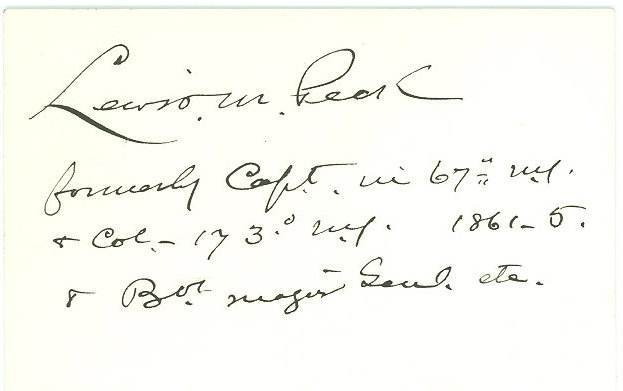 Lewis. M. Peck
formerly Capt. in 67" N.Y.
& Col. - 173d N.Y. 1861-5.
& Bvt major Genl. etc.